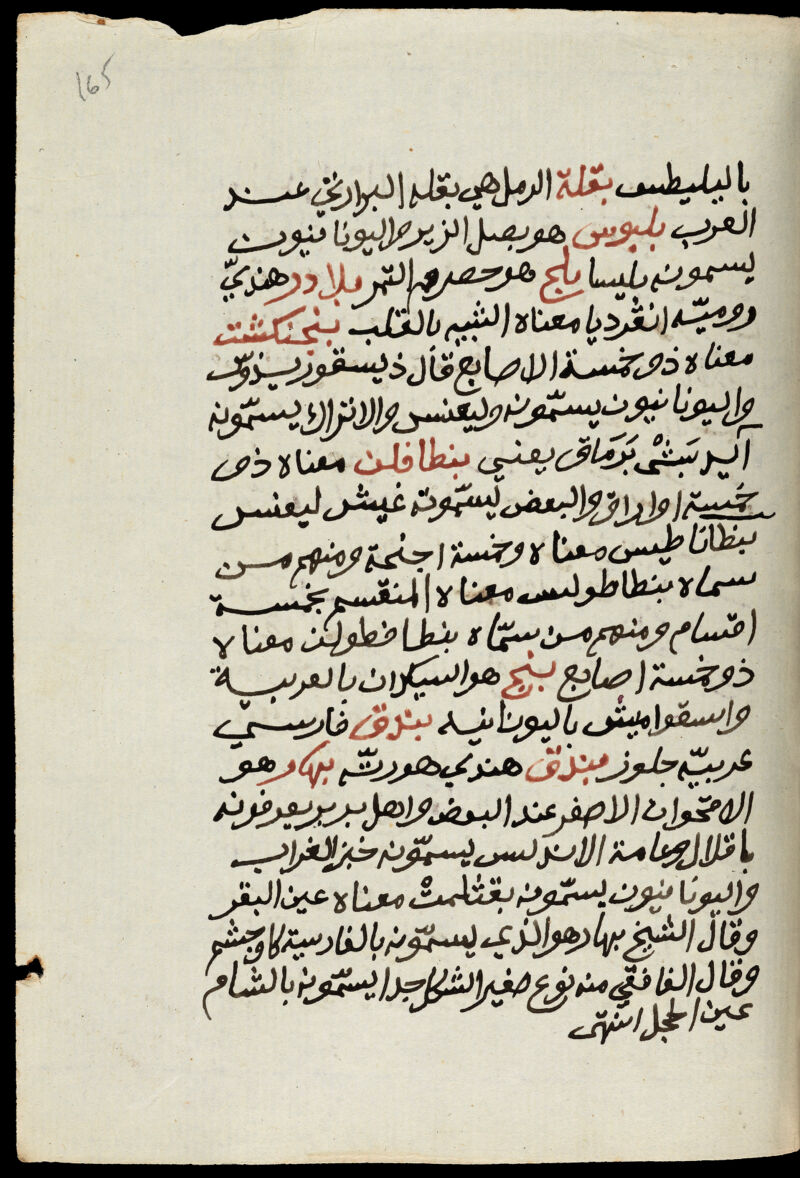 165
باليليطس بقلة الرمل هي بقله البراري عند
العرب بلبوس هو بصل الزير واليونانيون
يسمونه بلبسا بلح هو حصرم التمر بلادر هندي
روميّه انقرديا معناه الشبيه بالقلب بنجنكشت
معناه ذو خمسة الاصابع قال ذيسقوريذوس
واليونانيون يسمّونه وليعنس والاتراك يسمّونه
آليد بَشْ بَرَمَاق يعني بنطافلن معناه ذو
خمسة اوراق والبعض يسمّونه غيش ليعنس
بنطاناطيس معناه وخمسة اجنحة ومنهم من
سماه بنطاطولس معناه المنقسم بخمسة
اقسام ومنهم من سمّاه بنطاخطولن معناه
ذو خمسة اصابع بنج هو السيكران بالعربية
واسقواميش باليونانيه بندق فارسي
عربيّه جلوز بندق هندي هو رتّه بهار هو
الاقحوان الاصفر عند البعض واهل بربر يعرفونه
باقلال وعامة الاندلس يسمّونه خبز الغراب
واليونانيون يسمّونه بقثلمثْ معناه عين البقر
وقال الشيخ بهار هو الذي يسمّونه بالفارسية كاوچشم
وقال الغافقي منه نوع صغير الشكل جدا يسمّونه بالشام
عين الحجل انتهى